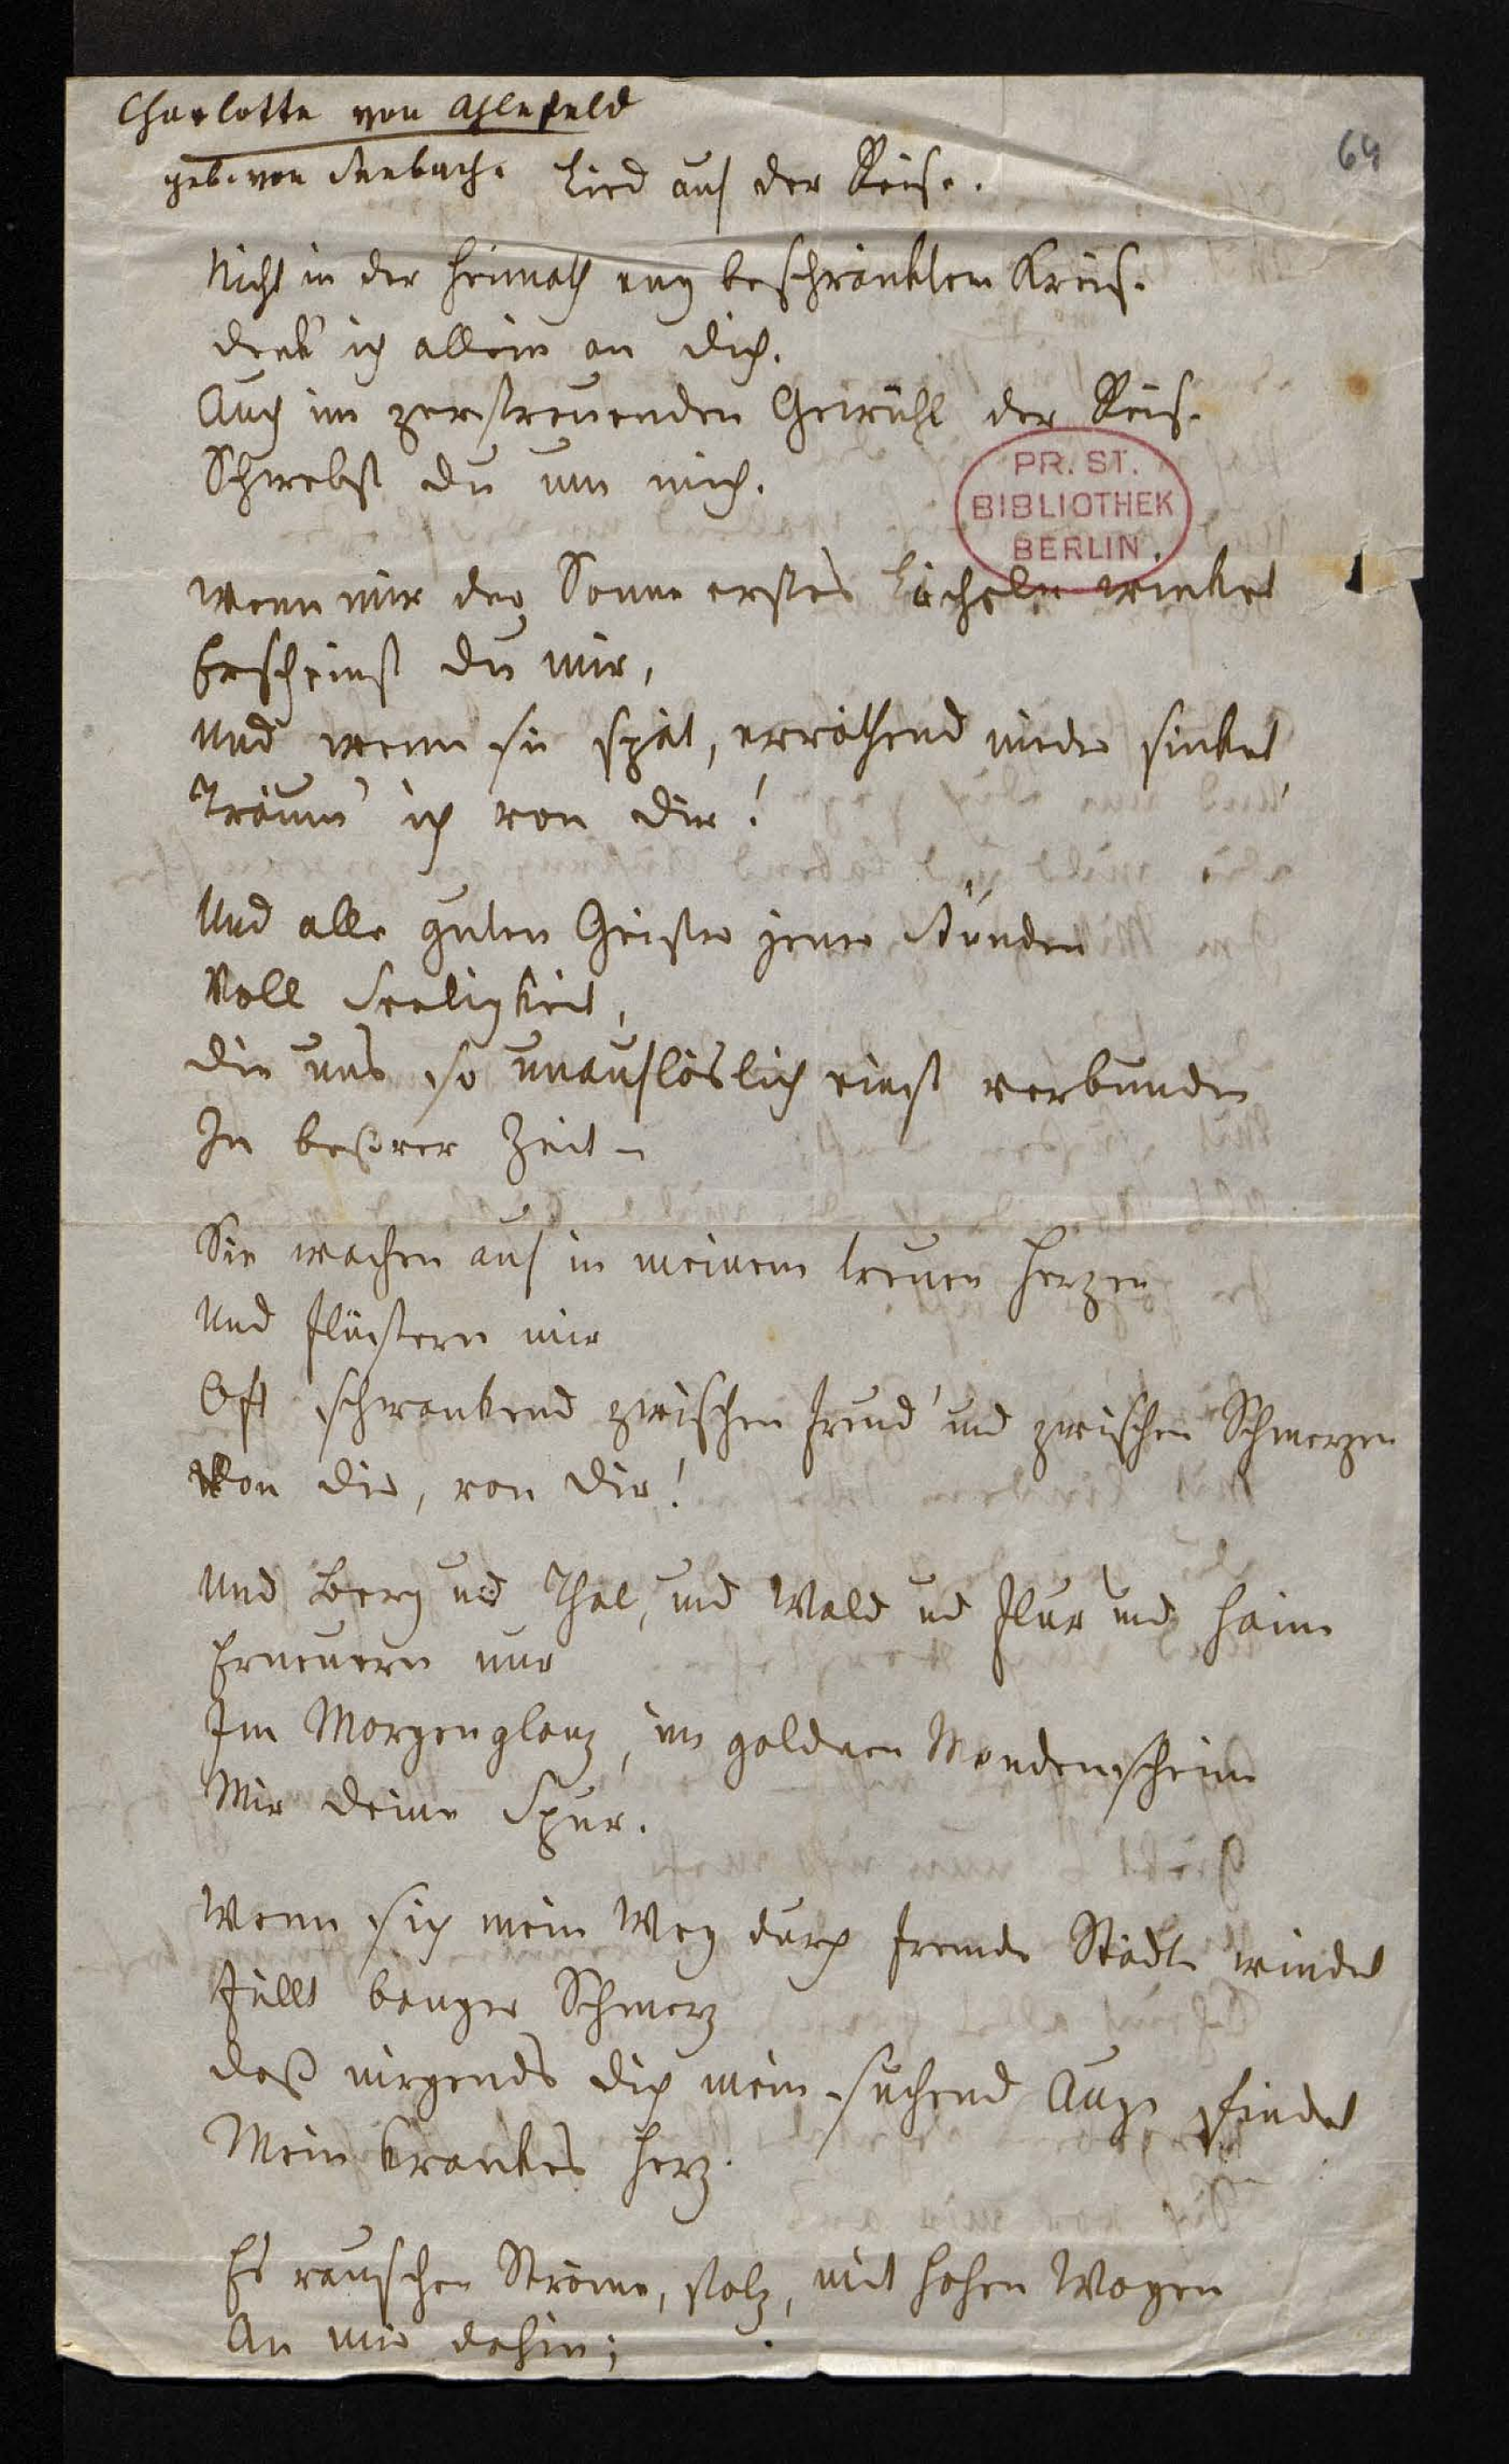 Charlotte von Ahlefeld
69
geb. von Seebach. Lied auf der Reise.
Nicht in der Heimath eng beschränktem Kreise
denk' ich allein an dich.
Auch im zerstreuenden Gewühl der Reise
Schwebst du um mich.
PR. ST.
BIBLIOTHEK
BERLIN.
Wenn mir der Sonne erstes Lächeln winket
Erscheinst du mir,
Und wenn sie spät, erröthend nieder sinket
Träum' ich von dir!
Und alle guten Geister jener Stunden
Voll Seeligkeit,
Die uns so unauflöslich einst verbunden
In beßrer Zeit –
Sie wachen auf in meinem treuen Herzen
Und flüstern mir
Oft schwankend zwischen Freud' und zwischen Schmerzen
Von dir, von dir!
Und Berg und Thal, und Wald und Flur und Haine
Erneuern nur
Im Morgenglanz, im goldnen Mondenscheine
Mir deine Spur.
Wenn sich mein Weg durch fremde Städte windet
Füllt banger Schmerz
daß nirgends dich mein suchend Auge findet
Mein krankes Herz.
Es rauschen Ströme, stolz, mit hohen Wogen
An mir dahin;